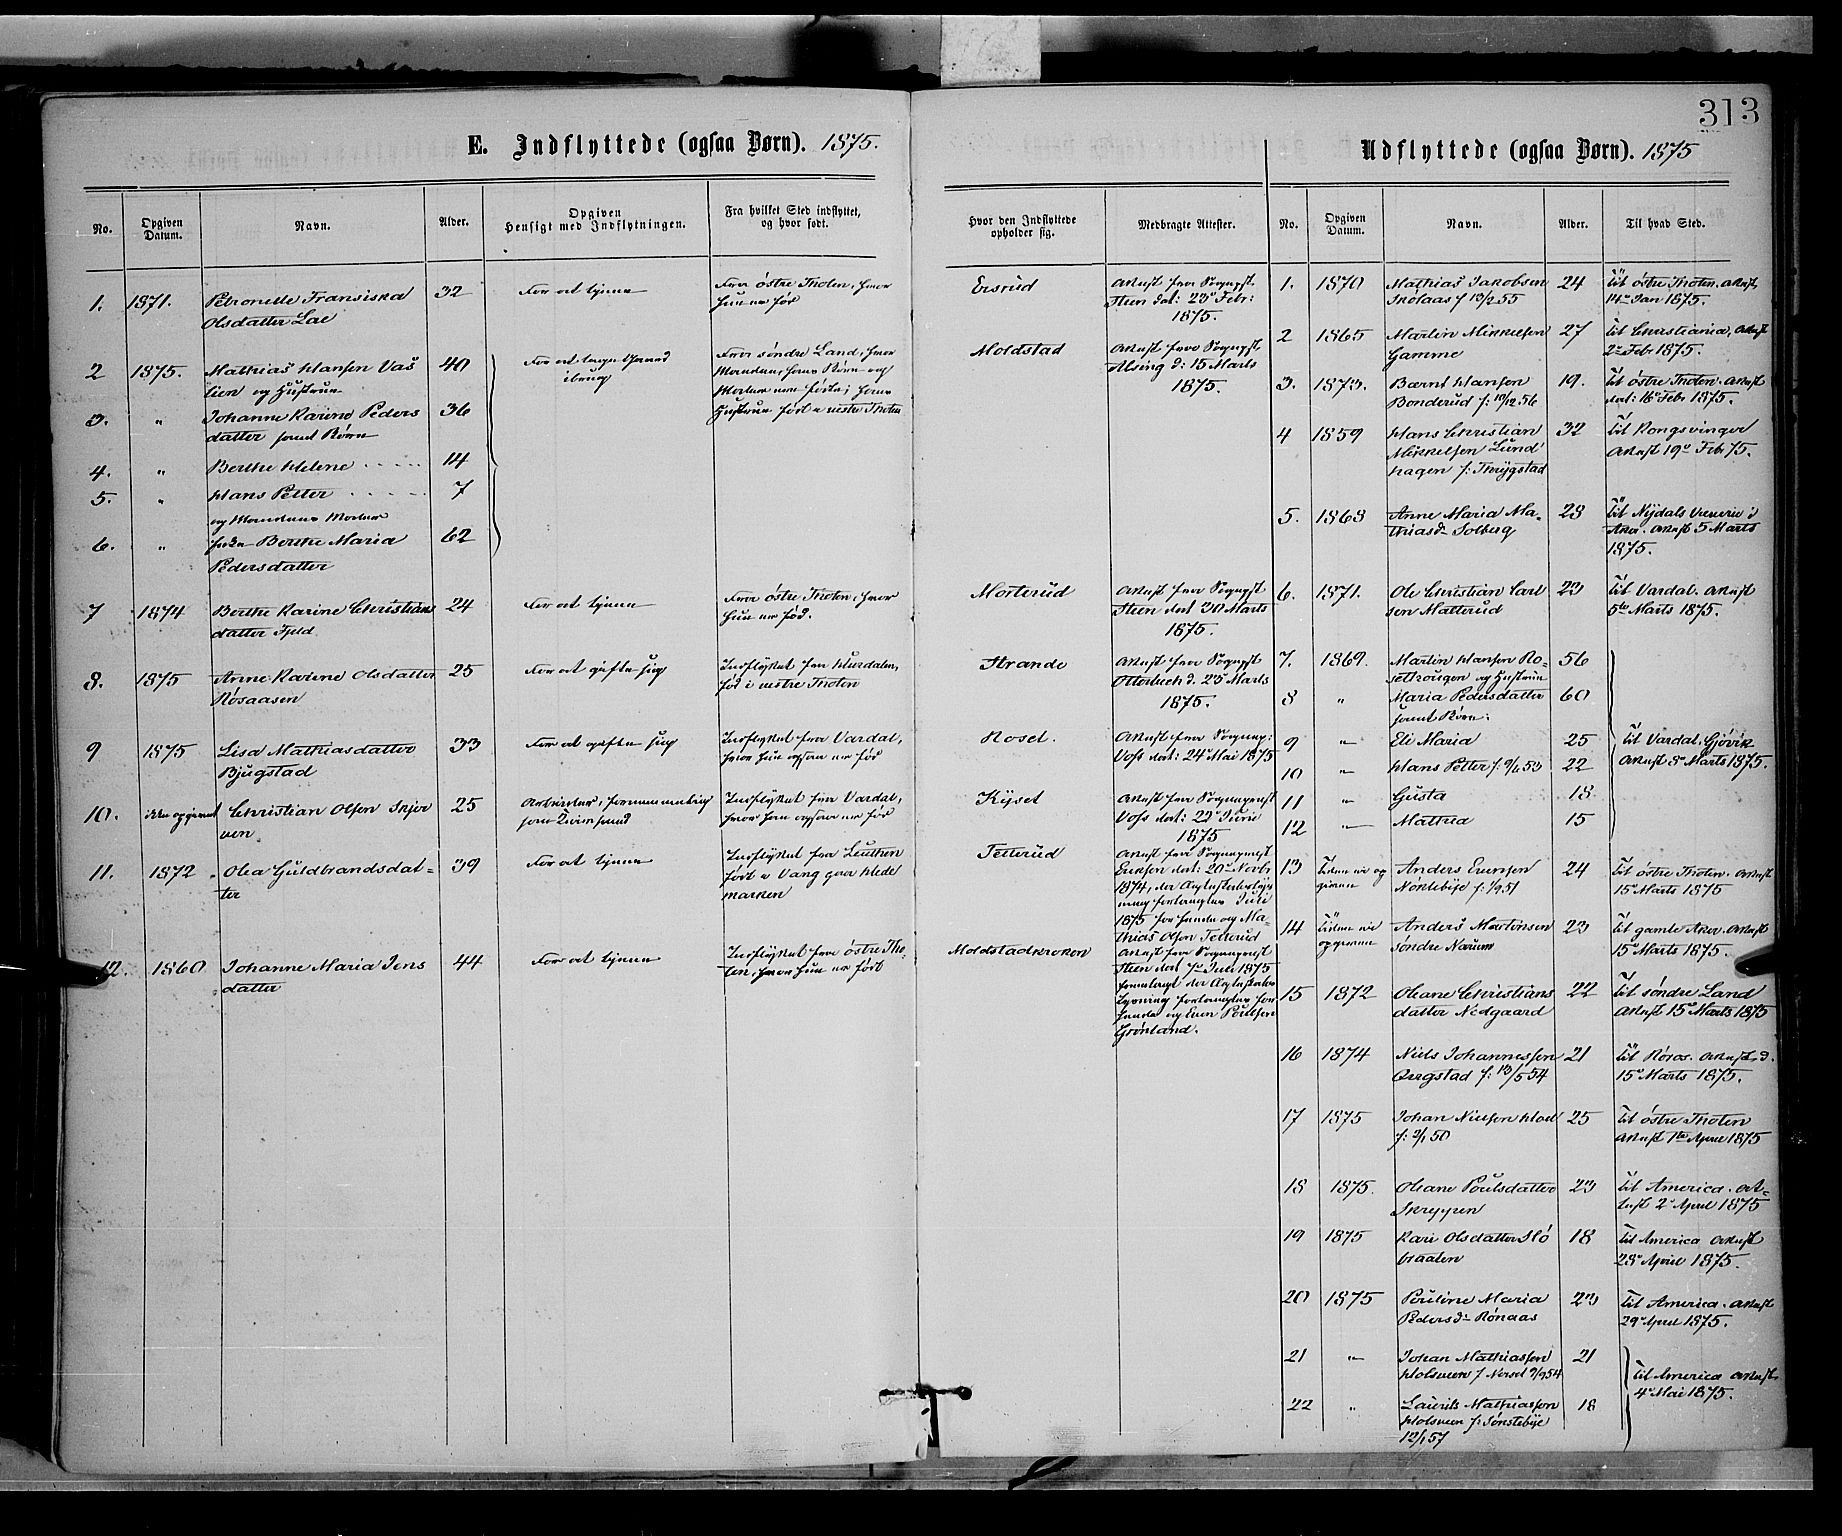 313
E. Indflyttede (ogsaa Børn). 1875.
No. Opgiven Datum. Navn. Alder. Opgiven Hensigt med Indflytningen. Fra hvilket Sted indflyttet, og hvor født. Hvor den Indflyttede opholder sig. Medbragte Attester.
1. 1871. Petronelle Fransiska 32 For at tjene Fra østre Thoten, hvor Eisrud Attest fra Sognepst
Olsdatter Lae hun er fød Steen dat: 23d Febr:
1875.
2 1875. Mathias Hansen 40 For at tage Gaard Fra søndre Land, hvor Moldstad Attest fra Sognepst
lien og Hustrue ibrug Manden, hans Børn og Alsing d: 15 Marts
3. " Johanne Karine Peders 36 Moder ere fødte; hans 1875.
datter samt Børn Hustrue født i vestre Thoten
4. " Berthe Helene 14
5. " Hans Petter 7
og Mandens Moder
6. " Berthe Maria 62
Pedersdatter
7 1874 Berthe Karine Christians 24 For at tjene Fra østre Thoten, hvor Morterud Attest fra Sognepst
datter hun er fød. Steen dat 30 Marts
1875.
8. 1875 Anne Karine Olsdatter 25 For at gifte sig Indflyttet fra Hurdalen, Strande Attest fra Sognepst
Røsaasen fød i vestre Thoten Otterbech d. 23d Marts
1875.
9 1875 Lisa Mathiasdatter 33 For at gifte sig Indflyttet fra Vardal, Roset. Attest fra Sognep:
Bjugstad hvor hun ogsaa er fød Voss dat: 24d Mai 1875
10. ikke opgivet Christian Olsen Skjer 25 Arbeider, Indflyttet fra Vardal, Kyset Attest fra Sognepræst
ven som hvor han ogsaa er fød Voss dat: 22d Junie
1875
11. 1872 Olea Guldbrandsdat- 39 For at tjene Indflyttet fra Leuthen Tetterud Attest fra Sognepræst
ter født i Vang paa Hede Eriksen dat: 20de Novbr
marken 1874, der Ægteskabslys
ning forlangtes Juli
1875 for hende og Ma-
thias Olsen Tetterud
12. 1860 Johanne Maria Jens 44 For at tjene Indflyttet fra østre Tho- Moldstadkroken Attest fra Sognepræst
datter ten, hvor hun er født Steen dat Juli 1875
fremlagt der Ægteskabs
lysning forlangtes for
hende og Even Poulsen
Grønland.
Udflyttede (ogsaa Børn). 1875
No. Opgiven Datum. Navn. Alder. Til hvad Sted.
1. 1870 Mathias Jakobsen 24 Til østre Thoten. Attest
Skólaas f 13/2 55 14de Jan 1875.
2 1865 Martin Mikkelsen 27 Til Christiania, Attest
Gamme 2de Febr 1875.
3. 1873. Bernt Hansen 19. Til østre Thoten. Attest
Bonderud f: 56 dat: 16de Febr 1875.
4 1859 Hans Christian 32 Til Kongsvinger
Mikkelsen Lund Attest 19de Febr 75.
hagen f: Thrygstad
5. 1868 Anne Maria Ma- 28 Til Nydals Væverie i
thiasdr Solberg Aker. Attest 5 Marts
1875.
6. 1871. Ole Christian Carl 23 Til Vardal. Attest
sen Matterud 5te Marts 1875.
7. 1869. Martin Hansen Ro- 56
og Hustrue
8 " Maria Pedersdatter 60
samt Børn:
9 " Eli Maria 25 Til Vardal. Gjøvik
10 " Hans Petter f: 53 22 Attest 8de Marts 1875.
11 " Gusta 18
12 " Mathea 15
13 Tiden ei op 24 Til østre Thoten. Attest
given Anders Evensen 15de Marts 1875
Nøklebye f: 51
14 Tiden ei Anders Martinsen 23 Til gamle Aker. Attest
opgiven søndre Narum 15de Marts 1875.
15 1872 Oleane Christians 22 Til søndre Land
datter Nedgaard Attest 15de Marts 1875
16 1874 Niels Johannessen 21 Til Røros. Attest d.
Bergstad f: 13/5 54 15de Marts 1875.
17 1875 Johan Nielsen 25 Til østre Thoten
f: 50 Attest 1ste April 1875
18 1875. Oleane Poulsdatter 23 Til America. At-
Skreppen test 2de April 1875
19 1875 Kari Olsdatter Slå 18 Til America Attest
braaten 28de April 1875.
20 1875 Pouline Maria 23 Til America. Attest
Pedersdr Rønaas 29de April 1875.
21 " Johan Mathiassen 21
Holsveen f 54 Til America Attest
22 " Laurits Mathiassen 18 4de Mai 1875.
Holsveen f: Sønstebye
12/1 57